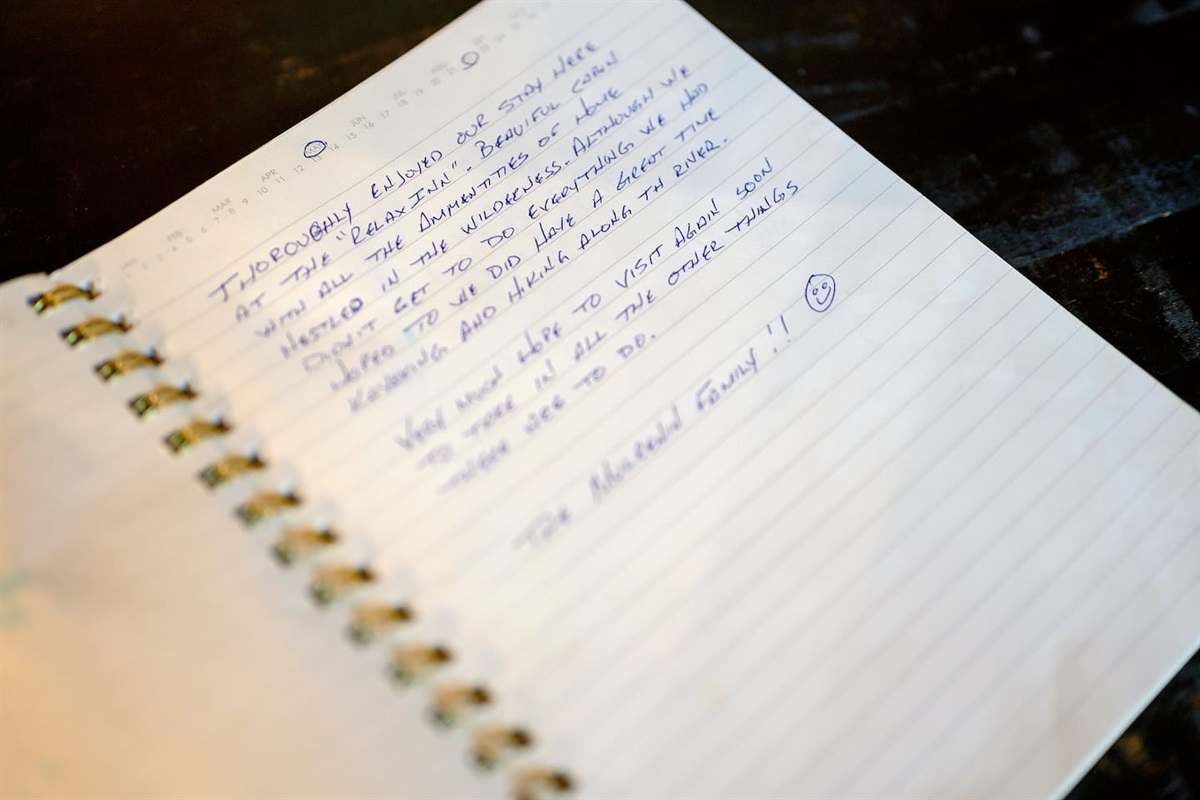 JAN FEB MAR APR MAY JUN JUL
10 11 12 13 14 15 16 17 18 19 20 21
THOROUGHLY ENJOYED OUR STAY HERE
AT THE "RELAX INN". BEAUIFUL CABIN
WITH ALL THE AMMENTITIES OF HOME
NESTLED IN THE WILDERNESS. ALTHOUGH WE
DIDN'T GET TO DO EVERYTHING WE HAD
HOPED TO WE DID HAVE A GREAT TIME
KAYAKING AND HIKING ALONG TH RIVER.
VERY MUCH HOPE TO VISIT AGAIN SOON
TO TAKE IN ALL THE OTHER THINGS
THERE ARE TO DO.
THE FAMILY!!